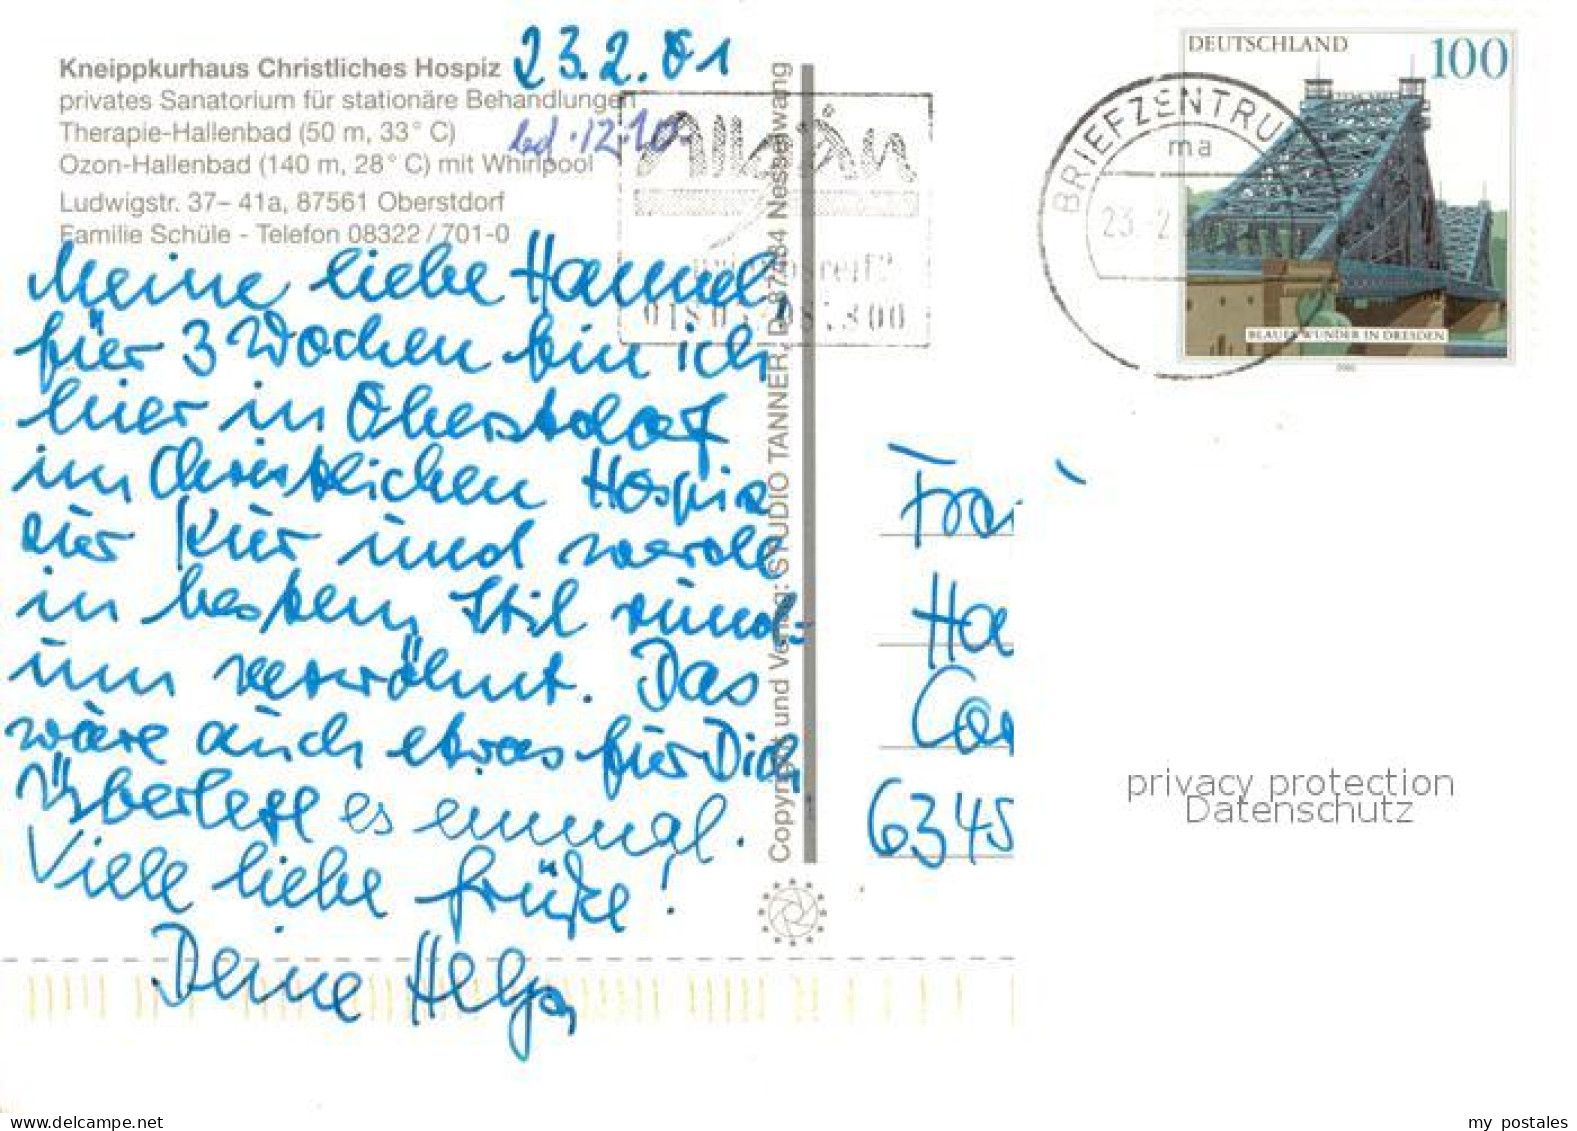 Kneippkurhaus Christliches Hospiz
privates Sanatorium für stationäre Behandlungen
Therapie-Hallenbad (50 m, 33° C)
Ozon-Hallenbad (140 m, 28° C) mit Whirlpool
Ludwigstr. 37– 41a, 87561 Oberstdorf
Familie Schüle - Telefon 08322 / 701-0
23.2.01
12.10.
Meine liebe Hannel,
für 3 Wochen bin ich
hier in Oberstdorf
im Christlichen Hospiz
zur Kur und werde
in bestem Stil rund-
um verwöhnt. Das
wäre auch etwas für Dich,
Überlege es einmal.
Viele liebe Grüße!
Deine Helga
Copyright und Verlag: STUDIO TANNER, D-87484 Nesselwang
DEUTSCHLAND 100
BLAUES WUNDER IN DRESDEN
2000
BRIEFZENTRU
ma
23.2
Frau
Ha
6345
privacy protection
Datenschutz
my postales